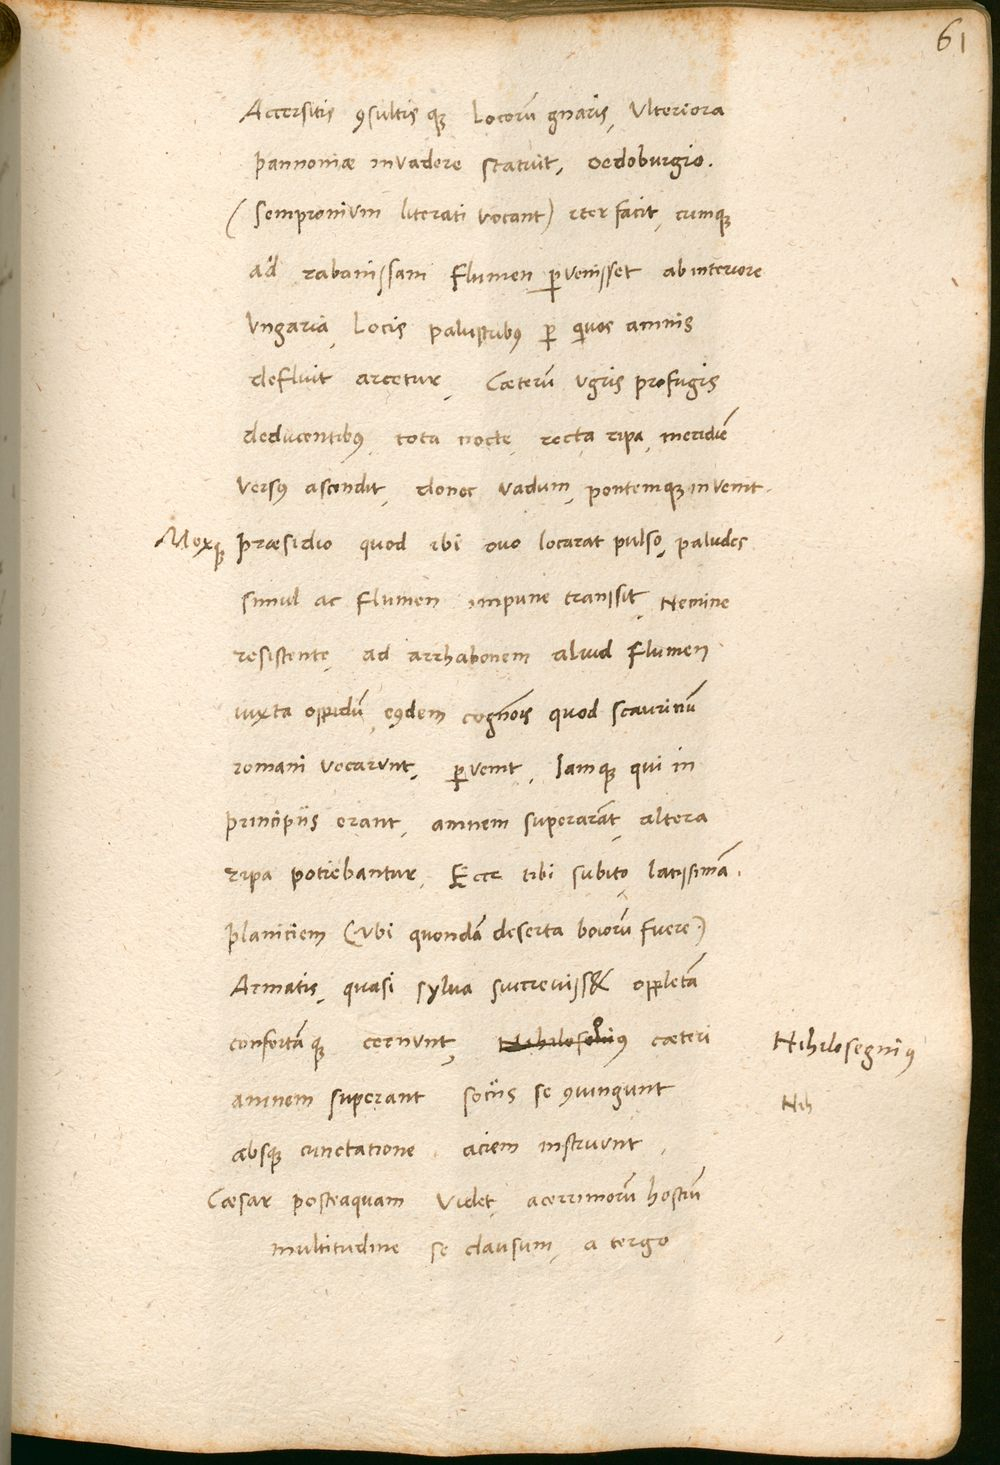 61
Accersitis ꝯsultis qꝫ locorũ gnaris, Ulteriora
pannoniæ invadere statuit, oedoburgio.
(sempronium literati vocant) iter facit, cumqꝫ
ad rabanissam Flumen ꝑvenisset ab interiore
Vngaria, Locis palustribꝰ ꝑ quos amnis
defluit arcetur, Cæterũ ugris profugis
deducentibꝰ, tota nocte, recta ripa, meridiẽ
versꝰ ascendit, donec vadum, pontemqꝫ invenit.
Moxqꝫ præsidio quod ibi ovo locarat pulso, paludes
simul ac Flumen impune transsit, Nemine
resistente, ad arrhabonem aliud Flumen
iuxta oppidũ eꝰdem cognõis quod scaurinũ
romani vocarunt, ꝑvenit, Iamqꝫ qui in
principiis erant, amnem superarãt, altera
ripa potiebantur, Ecce tibi subito, latissimã.
planitiem (Vbi quondã deserta boiorũ fuere.)
Armatis, quasi sylva succreviss&, oppletã
confertãqꝫ cernunt, cæteri
Nihilosegniꝰ
amnem superant sociis se ꝯiungunt
Nih
absqꝫ cunctatione, aciem instruunt,
Cæsar posteaquam Videt, acerrimorũ hostiũ
multitudine se clausum, a tergo